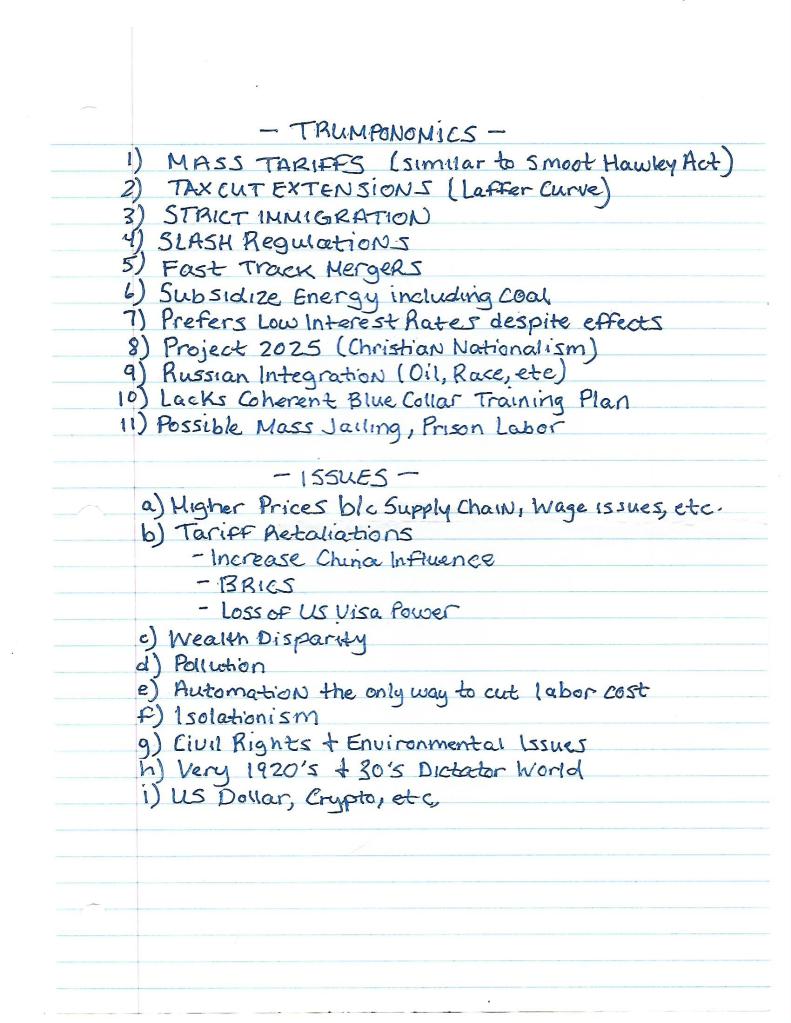 - TRUMPONOMICS -
1) MASS TARIFFS (similar to Smoot Hawley Act)
2) TAX CUT EXTENSIONS (Laffer Curve)
3) STRICT IMMIGRATION
4) SLASH Regulations
5) Fast Track Mergers
6) Subsidize Energy including Coal
7) Prefers Low Interest Rates despite effects
8) Project 2025 (Christian Nationalism)
9) Russian Integration (Oil, Race, etc)
10) Lacks Coherent Blue Collar Training Plan
11) Possible Mass Jailing, Prison Labor
- ISSUES -
a) Higher Prices b/c Supply Chain, Wage issues, etc.
b) Tariff Retaliations
- Increase China Influence
- BRICS
- Loss of US Visa Power
c) Wealth Disparity
d) Pollution
e) Automation the only way to cut labor cost
f) Isolationism
g) Civil Rights + Environmental Issues
h) Very 1920's + 30's Dictator World
i) US Dollar, Crypto, etc,